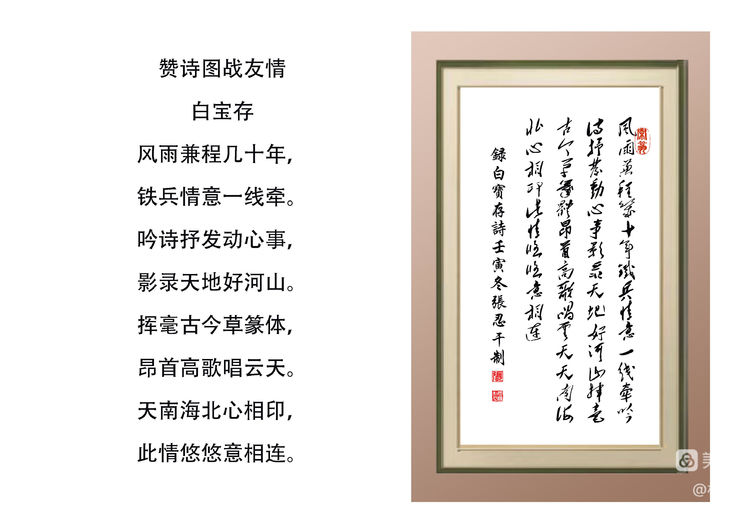 赞诗图战友情
白宝存
风雨兼程几十年,
铁兵情意一线牵。
吟诗抒发动心事,
影录天地好河山。
挥毫古今草篆体,
昂首高歌唱云天。
天南海北心相印,
此情悠悠意相连。
风雨兼程几十年铁兵情意一线牵吟
诗抒发动心事影录天地好河山挥毫
古今草篆體昂首高歌唱雲天天南海
北心相印此情悠悠意相連
録白寶存詩壬寅冬張忍千制
美
@